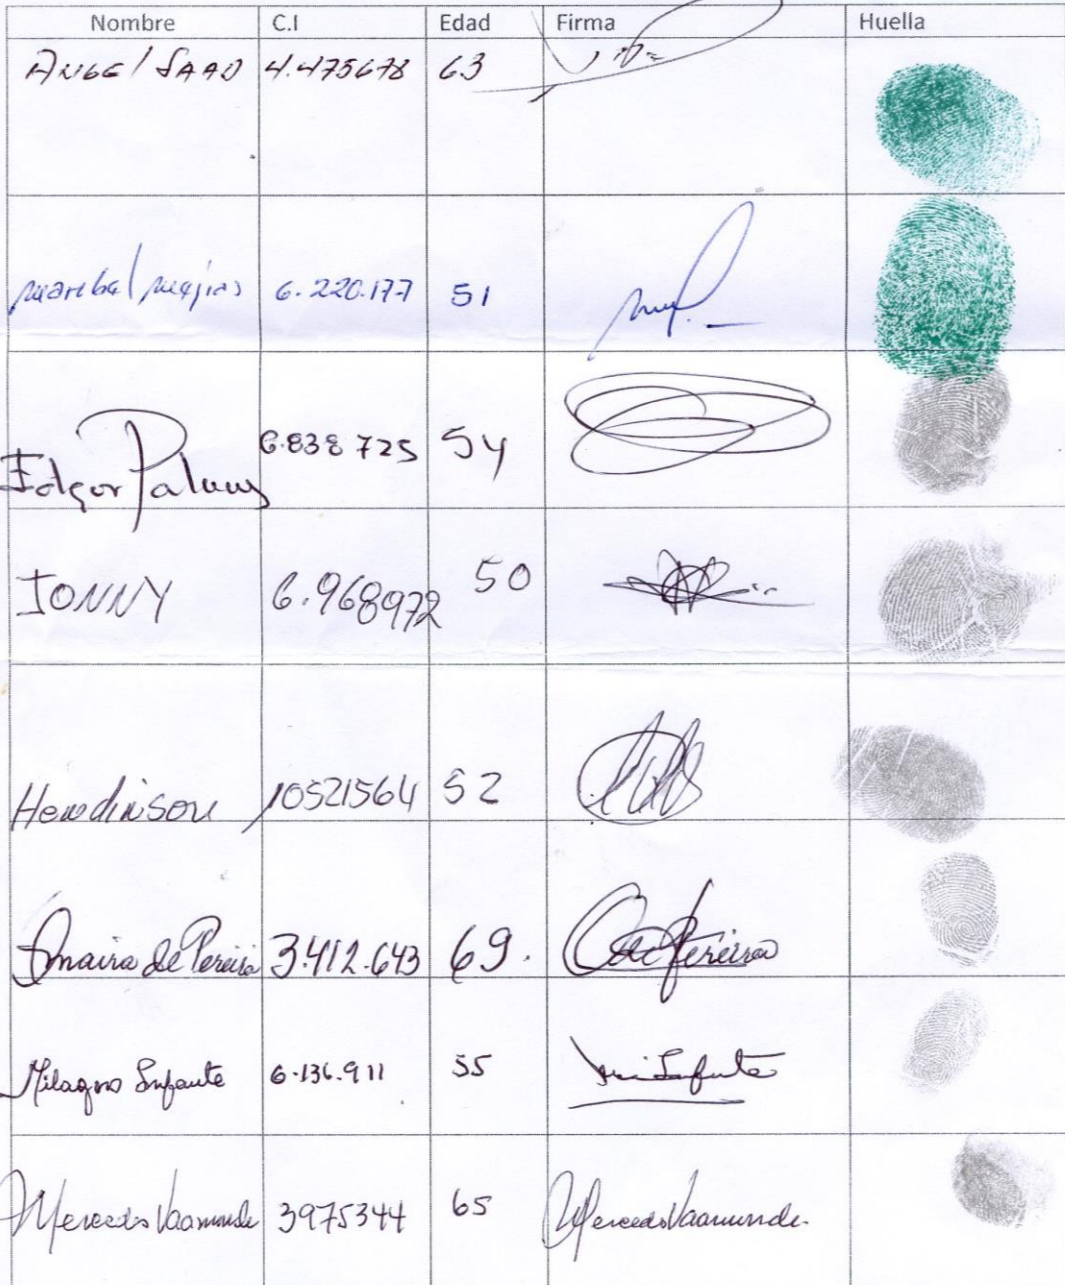 Nombre C.I Edad Firma Huella
ANGEl SAAD 4.475678 63
Maribel Mejias 6.220.177 51
Edgar 6.838725 54
JONNY 6.968972 50
Hendinson 10521564 52
Omaira de Pereira 3.412.643 69. Pereira
Milagros Infante 6.136.911 55 Infante
Mercedes Vaamonde 3975344 65 Mercedes Vaamonde.